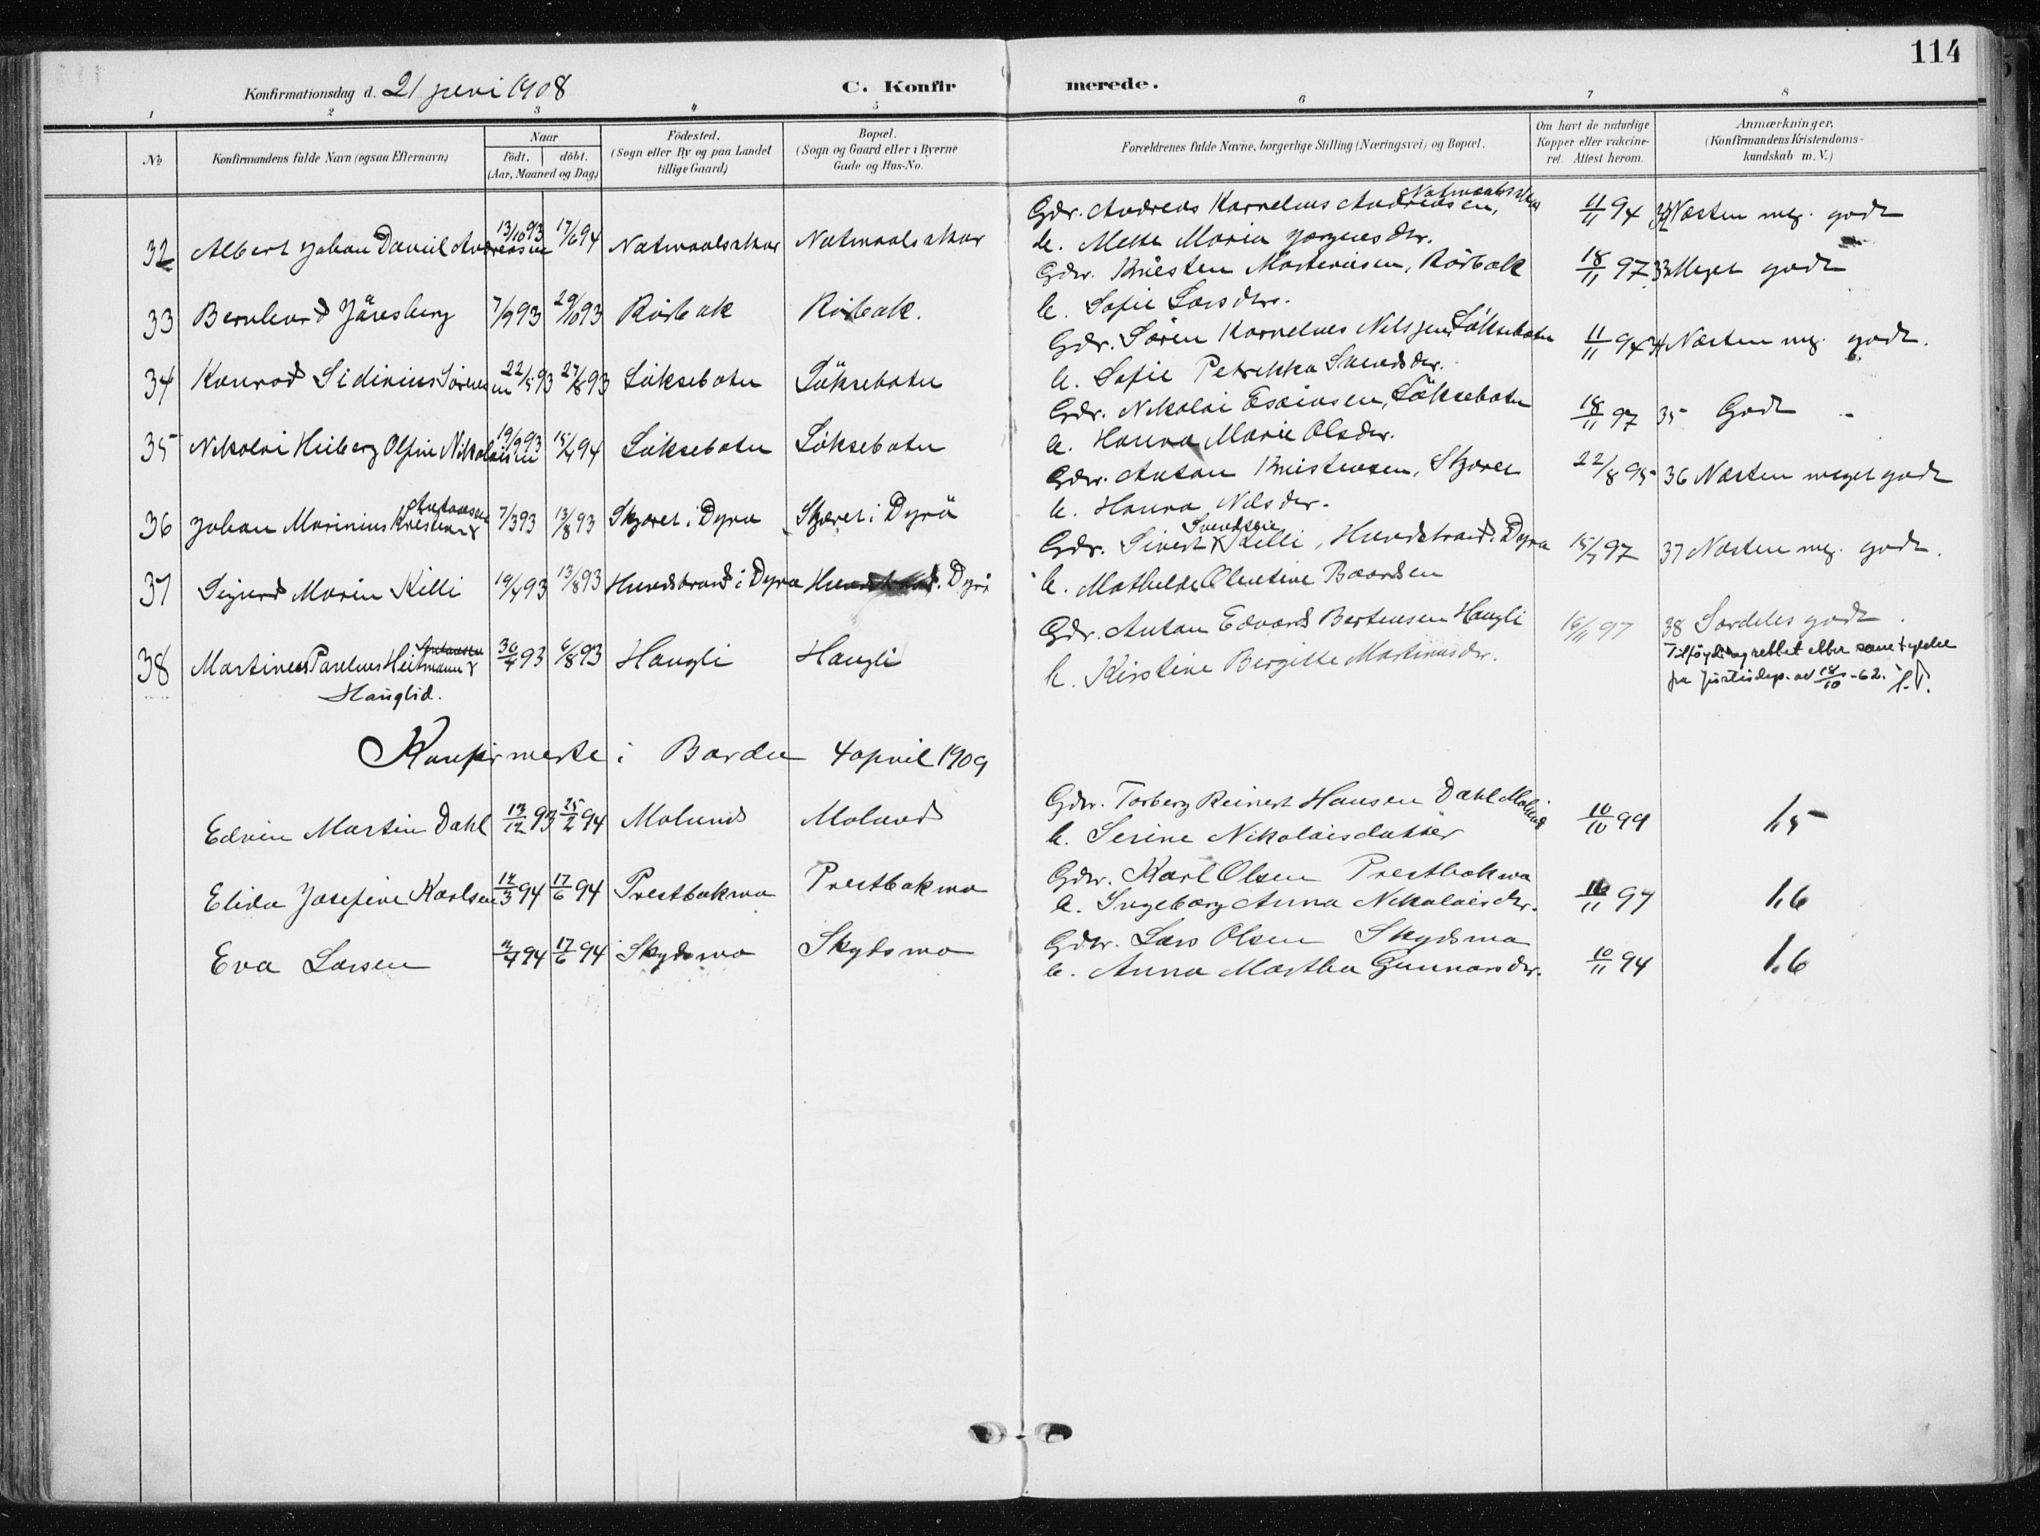 114
Konfirmationsdag d. 21 juni 1908
C. Konfirmerede.
1 2 3 4 5 6 7 8
No
Konfirmandens fulde Navn (ogsaa Efternavn)
Naar
født. døbt.
(Aar, Maaned og Dag)
Fødested.
(Sogn eller By og paa Landet
tillige Gaard)
Bopæl.
(Sogn og Gaard eller i Byerne
Gade og Hus-No.
Forældrenes fulde Navne, borgerlige Stilling (Næringsvei) og Bopæl.
Om havt de naturlige
Kopper eller vakcine-
ret. Attest herom.
Anmærkninger.
(Konfirmandens Kristendoms-
kundskab m. V.)
32 Albert Johan Daniel Andreasen 13/10 93 17/6 94 Natmaalsakar Natmaalsakar
Gdr. Andreas Kornelius Andreasen, Natmaalsakar
h. Mette Maria Jørgensdtr.
11/11 94 32 Næsten meg. godt
33 Bernhard Järesberg 7/9 93 29/10 93 Rörbak Rörbak.
Gdr. Kristen Mortensen, Rörbak
h. Sofie Larsdtr.
18/11 97 33 Meget godt
34 Konrad Sidinius Sörensen 22/5 93 27/8 93 Löksebotn Löksebotn
Gdr. Sören Kornelius Nilsen, Löksebotn
h. Sofie Petrikka Svendsdtr.
11/11 94 34 Næsten meg. godt.
35 Nikolai Heiberg Olfin Nikolaisen 19/9 93 15/4 94 Löksebotn Löksebotn
Gdr. Nikolai Esaiasen, Löksebotn
h. Hanna Marie Olsdtr.
18/11 97 35 Godt
36 Johan Marinius Kristian Antonsen 7/3 93 13/8 93 Skjæret i Dyrø Skjæret i Dyrö
Gdr. Anton Kristensen, Skjæret
h. Hanna Nilsdtr.
22/8 95 36 Næsten meget godt
37 Sigurd Marin Killi 19/4 93 13/8 93 Hundstrand i Dyrø Hundstrand i Dyrö
Gdr. Sivert Svendsen Killi, Hundstrand i Dyrø
h. Mathilde Olentine Baardsen
15/7 97 37 Næsten meg. godt.
38 Martines Paulus Heitmann Antonsen 30/4 93 6/8 93 Haugli Haugli
Hauglid.
Gdr. Anton Edvard Bertensen Haugli
h. Kirstine Bergitte Martinusdtr.
16/11 97 38 Særdeles godt.
Tilføyd og rettet etter samtykke
fra Justisdep. av 18/10-62.
Konfirmerte i Bardu 4 april 1909
Edvin Martin Dahl 13/12 93 25/2 94 Molund Molund
Gdr. Torberg Reinert Hansen Dahl Molund
h. Serine Nikolaisdatter
10/10 99 1,5
Elida Josefine Karlsen 12/3 94 17/6 94 Prestbakmo Prestbakmo
Gdr. Karl Olsen Prestbakmo
h. Ingeborg Anna Nikolaisdtr.
10/11 97 1,6
Eva Larsen 2/4 94 17/6 94 Skydsmo Skydsmo
Gdr. Lars Olsen Skydsmo
h. Anna Martha Gunnarsdtr.
10/11 94 1,6